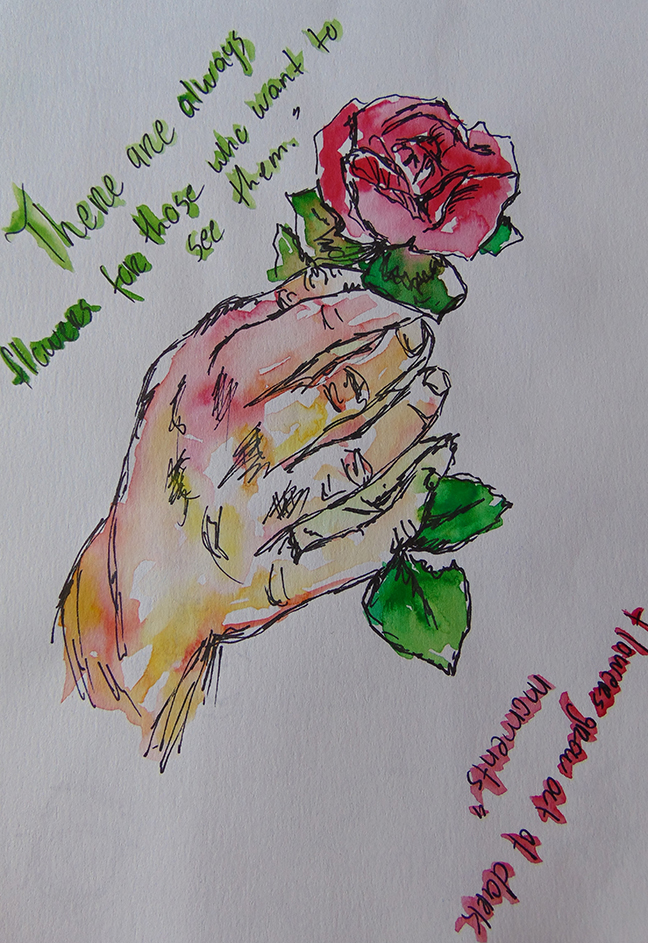 There are always
flowers for those who want to
see them."
Flowers grow out of dark
moments"